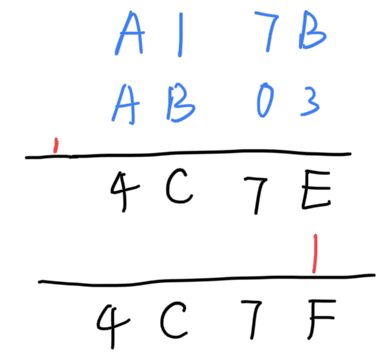 A 1 7 B
A B 0 3
1
4 C 7 E
1
4 C 7 F